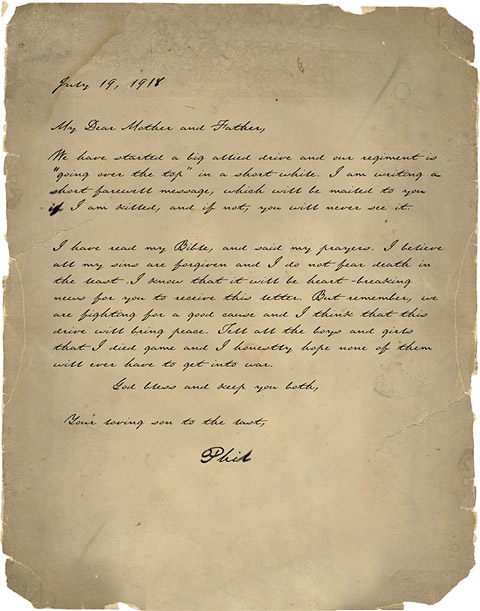 July 19, 1918
My Dear Mother and Father,
We have started a big allied drive and our regiment is
"going over the top" in a short while. I am writing a
short farewell message, which will be mailed to you
if I am killed, and if not, you will never see it.
I have read my Bible, and said my prayers. I believe
all my sins are forgiven and I do not fear death in
the least. I know that it will be heart-breaking
news for you to receive this letter. But remember, we
are fighting for a good cause and I think that this
drive will bring peace. Tell all the boys and girls
that I died game and I honestly hope none of them
will ever have to get into war.
God bless and keep you both,
Your loving son to the last,
Phil